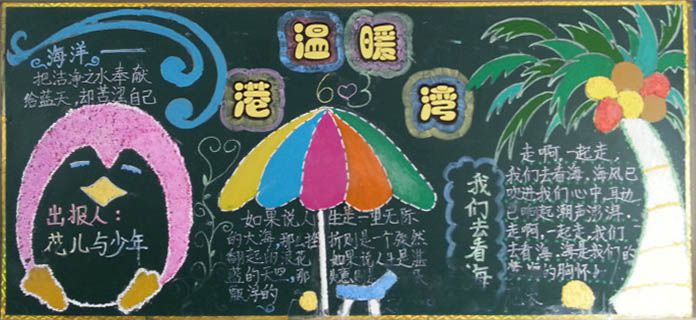 海洋——
把洁净之水奉献
给蓝天,却苦涩自己
温暖
港湾
6 3
出报人:
花儿与少年
如果说人生是一望无际
的大海,那么挫折则是一个骤然
翻起的浪花。如果说人生是
蓝的天空,那
飘浮的
我们去看海
走啊,一起走,
我们去看海.海风已
吹进我们心中,耳边
已响起潮声澎湃.
走啊,一起走,我们
去看海.海是我们的
的胸怀!